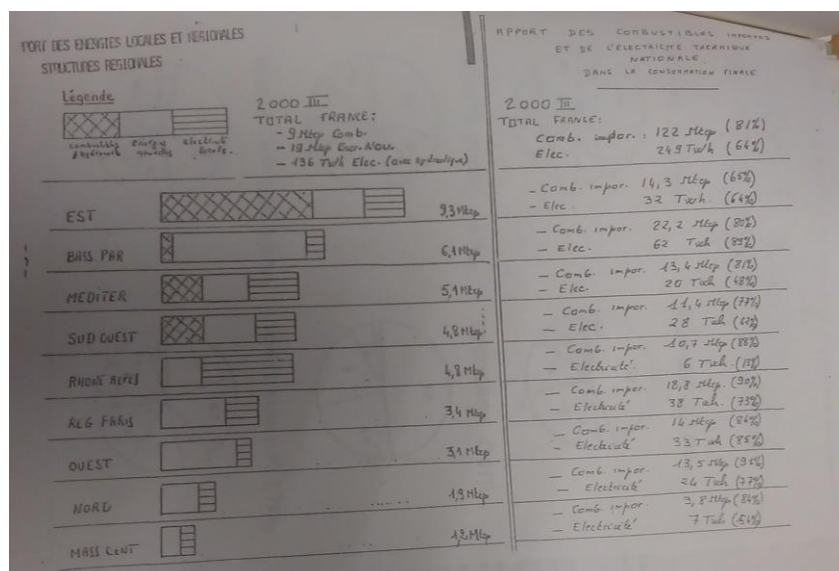 PORT DES ENERGIES LOCALES ET REGIONALES
STRUCTURES REGIONALES
Légende
combustibles
Energies
electricité
nouvelles
2000 III
TOTAL FRANCE:
- 9 Mtep Comb.
- 19 Mtep Ener. Nou.
- 136 Twh Elec. (avec hydraulique)
EST 9,3 Mtep
BASS PAR 6,1 Mtep
MEDITER 5,1 Mtep
SUD OUEST 4,8 Mtep
RHONE ALPES 4,8 Mtep
REG PARIS 3,4 Mtep
OUEST 3,1 Mtep
NORD 1,9 Mtep
MASS CENT 1,2 Mtep
APPORT DES COMBUSTIBLES IMPORTES
ET DE L'ELECTRICITE THERMIQUE
NATIONALE
DANS LA CONSOMMATION FINALE
2000 III
TOTAL FRANCE:
Comb. impor. : 122 Mtep (81%)
Elec. 249 Twh (64%)
- Comb. impor. 14,3 Mtep (65%)
- Elec. 32 Twh. (64%)
- Comb. impor. 22,2 Mtep (80%)
- Elec. 62 Twh
- Comb. impor. 13,4 Mtep (81%)
- Elec. 20 Twh (48%)
- Comb. impor. 11,4 Mtep (77%)
- Elec. 28 Twh
- Comb. impor. 10,7 Mtep (88%)
- Electricité. 6 Twh.
- Comb. impor. 18,8 Mtep. (90%)
- Electricité 38 Twh. (73%)
- Comb. impor. 14 Mtep (84%)
- Electricité 33 Twh (85%)
- Comb. impor. 13,5 Mtep
- Electricité 24 Twh (77%)
- Comb. impor. 3,8 Mtep (84%)
- Electricité 7 Twh (54%)